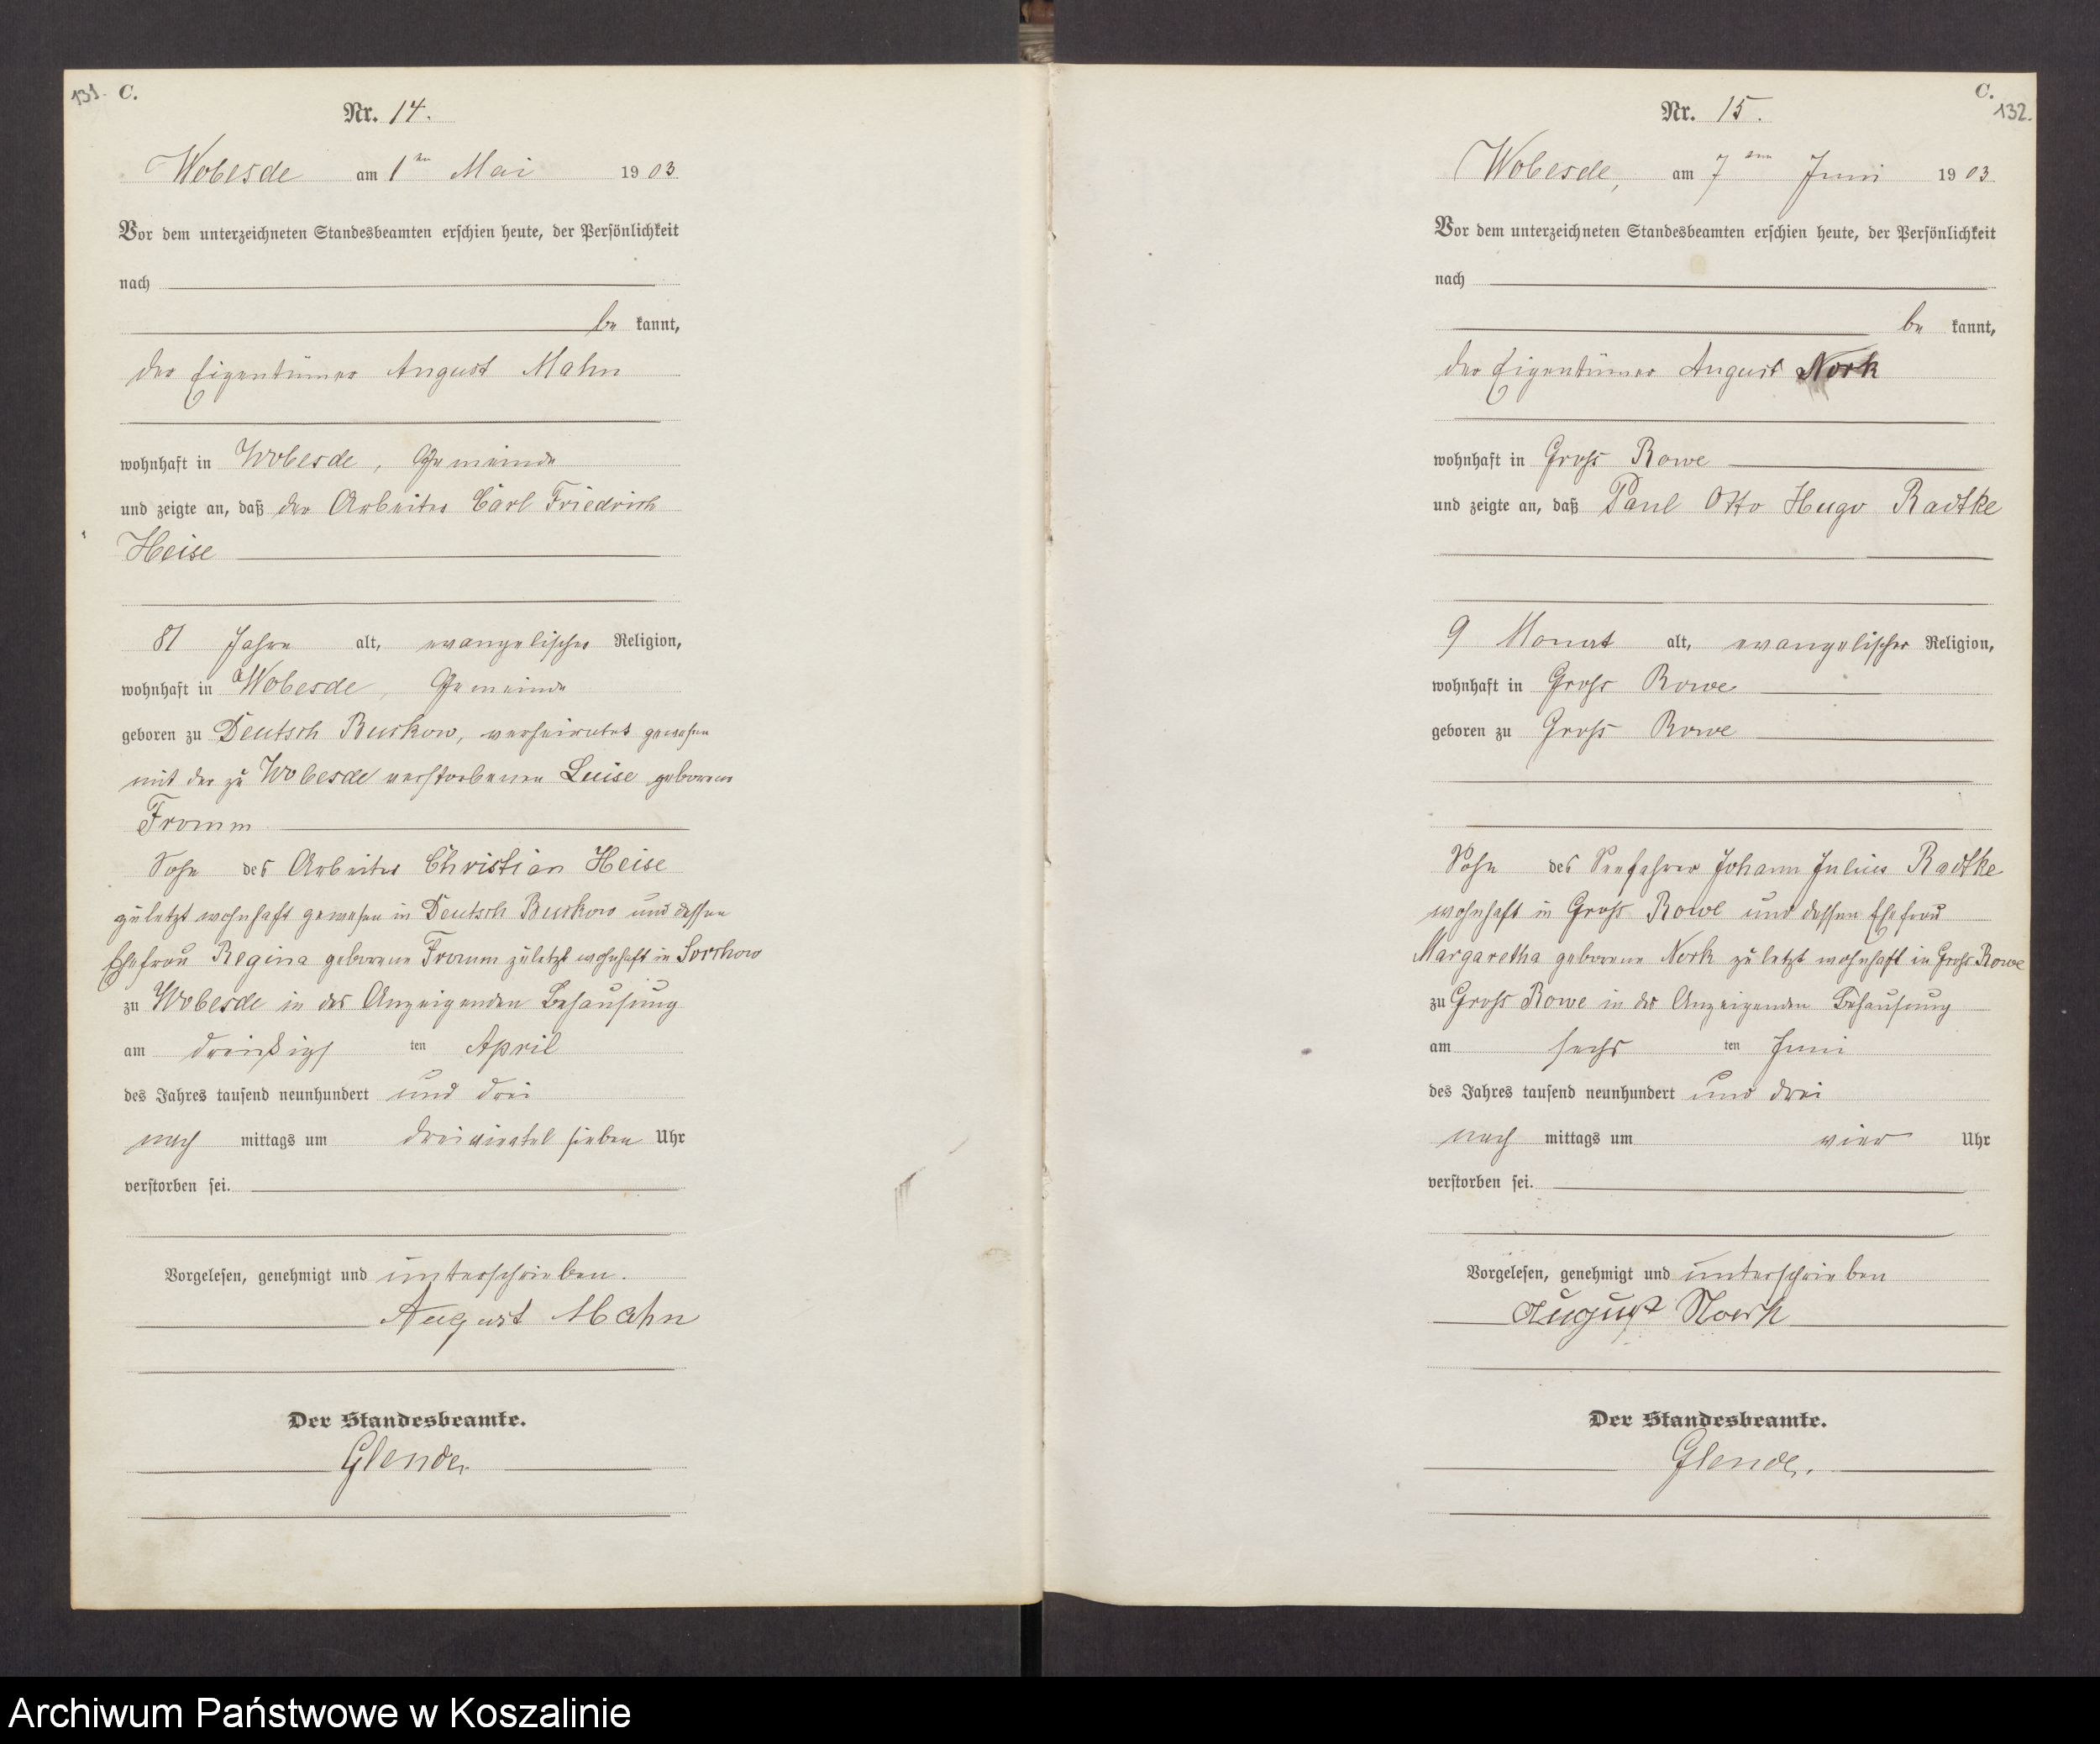 131. C.
Nr. 14.
Wobesde am 1ten Mai 1903
Vor dem unterzeichneten Standesbeamten erschien heute, der Persönlichkeit
nach
be kannt,
der Eigentümer August Mahn
wohnhaft in Wobesde, Gemeinde
und zeigte an, daß der Arbeiter Carl Friedrich
Heise
81 Jahre alt, evangelischer Religion,
wohnhaft in Wobesde, Gemeinde
geboren zu Deutsch Buckow, verheiratet gewesen
mit der zu Wobesde verstorbenen Luise geborene
Fromm
Sohn des Arbeiter Christian Heise
zuletzt wohnhaft gewesen in Deutsch Buckow und dessen
Ehefrau Regina geborene Fromm zuletzt wohnhaft in Sorchow
zu Wobesde in des Anzeigenden Behausung
am dreißigs ten April
des Jahres tausend neunhundert und drei
nach mittags um dreiviertel sieben Uhr
verstorben sei.
Vorgelesen, genehmigt und unterschrieben.
August Mahn
Der Standesbeamte.
Glende.
C.
132.
Nr. 15.
Wobesde, am 7ten Juni 1903
Vor dem unterzeichneten Standesbeamten erschien heute, der Persönlichkeit
nach
be kannt,
der Eigentümer August Nork
wohnhaft in Gross Rowe
und zeigte an, daß Paul Otto Hugo Radtke
9 Monat alt, evangelischer Religion,
wohnhaft in Gross Rowe
geboren zu Gross Rowe
Sohn des Seefahrer Johann Julius Radtke
wohnhaft in Gross Rowe und dessen Ehefrau
Margaretha geborene Nork zuletzt wohnhaft in Gross Rowe
zu Gross Rowe in des Anzeigenden Behausung
am sechs ten Juni
des Jahres tausend neunhundert und drei
nach mittags um vier Uhr
verstorben sei.
Vorgelesen, genehmigt und unterschrieben
August Noerk
Der Standesbeamte.
Glende.
Archiwum Państwowe w Koszalinie